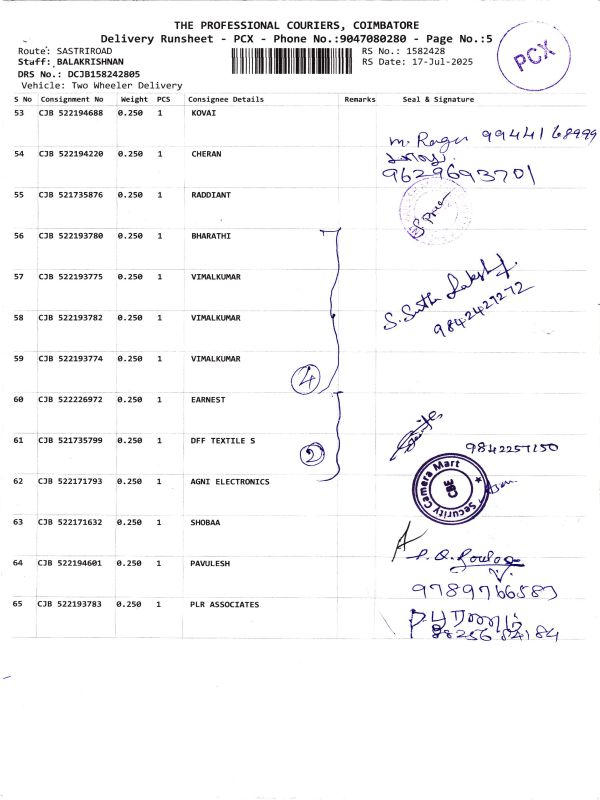 THE PROFESSIONAL COURIERS, COIMBATORE
Delivery Runsheet - PCX - Phone No.:9047080280 - Page No.:5
PCX
Route: SASTRIROAD RS No.: 1582428
Staff: BALAKRISHNAN RS Date: 17-Jul-2025
DRS No.: DCJB158242805
Vehicle: Two Wheeler Delivery
S No Consignment No Weight PCS Consignee Details Remarks Seal & Signature
53 CJB 522194688 0.250 1 KOVAI
99441 68999
54 CJB 522194220 0.250 1 CHERAN
9629693701
55 CJB 521735876 0.250 1 RADDIANT
56 CJB 522193780 0.250 1 BHARATHI
57 CJB 522193775 0.250 1 VIMALKUMAR
58 CJB 522193782 0.250 1 VIMALKUMAR
9842427272
59 CJB 522193774 0.250 1 VIMALKUMAR
4
60 CJB 522226972 0.250 1 EARNEST
61 CJB 521735799 0.250 1 DFF TEXTILE S
9842257150
2
62 CJB 522171793 0.250 1 AGNI ELECTRONICS
Security Camera Mart
CBE
63 CJB 522171632 0.250 1 SHOBAA
64 CJB 522194601 0.250 1 PAVULESH
9789766587
65 CJB 522193783 0.250 1 PLR ASSOCIATES
98256 84184